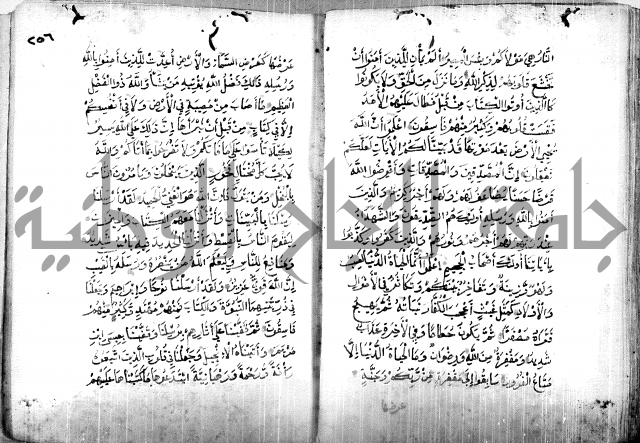 النار هي مولاكم وبئس المصير الم يأن للذين آمنوا ان
تخشع قلوبهم لذكر الله وما نزل من الحق ولا يكونوا
كالذين اوتوا الكتاب من قبل فطال عليهم الامد
فقست قلوبهم وكثير منهم فاسقون اعلموا ان الله
يحيي الارض بعد موتها قد بينا لكم الايات لعلكم
تعقلون ان المصدقين والمصدقات واقرضوا الله
قرضا حسنا يضاعف لهم ولهم اجر كريم والذين
آمنوا بالله ورسله اولئك هم الصديقون والشهداء
عند ربهم لهم اجرهم ونورهم والذين كفروا وكذبوا
بآياتنا اولئك اصحاب الجحيم اعلموا انما الحياة الدنيا لعب
ولهو وزينة وتفاخر بينكم وتكاثر في الاموال
والاولاد كمثل غيث اعجب الكفار نباته ثم يهيج
فتراه مصفرا ثم يكون حطاما وفي الآخرة عذاب
شديد ومغفرة من الله ورضوان وما الحياة الدنيا الا
متاع الغرور سابقوا الى مغفرة من ربكم وجنة
عرضها
٢٥٦
عرضها كعرض السماء والارض اعدت للذين آمنوا بالله
ورسله ذلك فضل الله يؤتيه من يشاء والله ذو الفضل
العظيم ما اصاب من مصيبة في الارض ولا في انفسكم
الا في كتاب من قبل ان نبرأها ان ذلك على الله يسير
لكيلا تأسوا على ما فاتكم ولا تفرحوا بما آتاكم والله
لا يحب كل مختال فخور الذين يبخلون ويأمرون الناس
بالبخل ومن يتول فان الله هو الغني الحميد لقد ارسلنا
رسلنا بالبينات وانزلنا معهم الكتاب والميزان
ليقوم الناس بالقسط وانزلنا الحديد فيه بأس شديد
ومنافع للناس وليعلم الله من ينصره ورسله بالغيب
ان الله قوي عزيز ولقد ارسلنا نوحا وابراهيم وجعلنا
في ذريتهما النبوة والكتاب فمنهم مهتد وكثير منهم
فاسقون ثم قفينا على آثارهم برسلنا وقفينا بعيسى ابن
مريم وآتيناه الانجيل وجعلنا في قلوب الذين اتبعوه
رأفة ورحمة ورهبانية ابتدعوها ما كتبناها عليهم
جامعة النجاح الوطنية